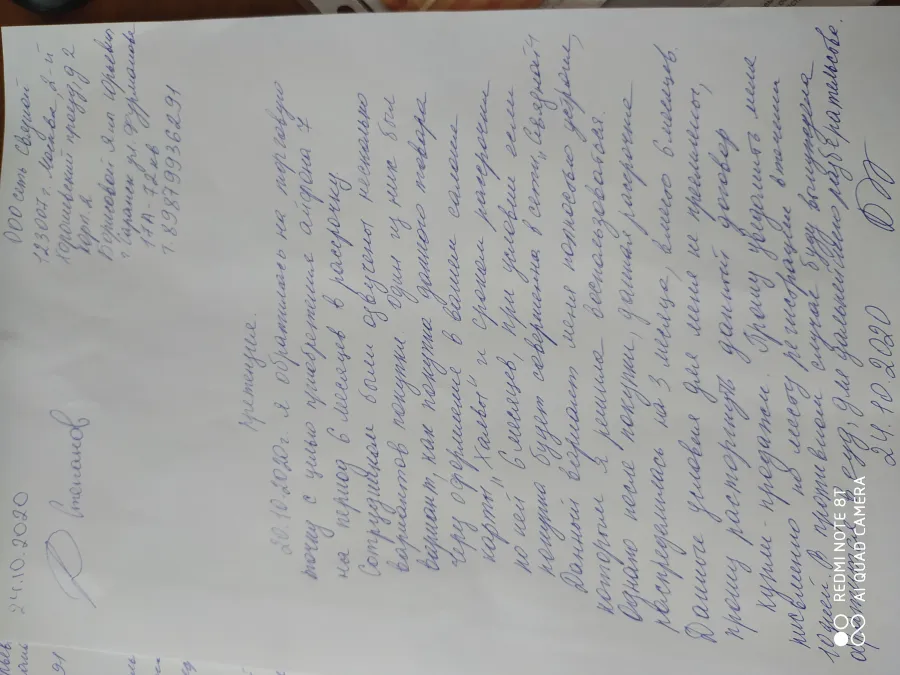 ООО сеть Связной
123007 г. Москва, 2-й
Хорошевский проезд, д 2
Корп. 2
Яна Юрьевна
ул. Фурманова
17А - 72 кв
т. 89879936291
24.10.2020
Степанов
Претензия.
20.10.2020г я обратилась на торговую
точку с целью приобретения айфона 7
на период 6 месяцев в рассрочку
Сотрудником были озвучены несколько
вариантов покупки. Один из них был
вариант, как покупка данного товара
через оформление в вашем салоне
карты "Халвы" и сроком рассрочки
по ней 6 месяцев, при условие если
покупка будет совершена в сети "Связной"
Данный вариант меня полностью устроил,
которым я решила воспользоваться.
Однако после покупки, данная рассрочка
распределилась на 3 месяца, вместо 6 месяцев.
Данные условия для меня не приемлемы,
прошу расторгнуть данный договор
купли-продажи. Прошу уведомить меня
письменно по месту регистрации в течении
10 дней. В противном случае буду вынуждена
суд, для дальнейшего разбирательства.
24.10.2020
REDMI NOTE 8T
AI QUAD CAMERA